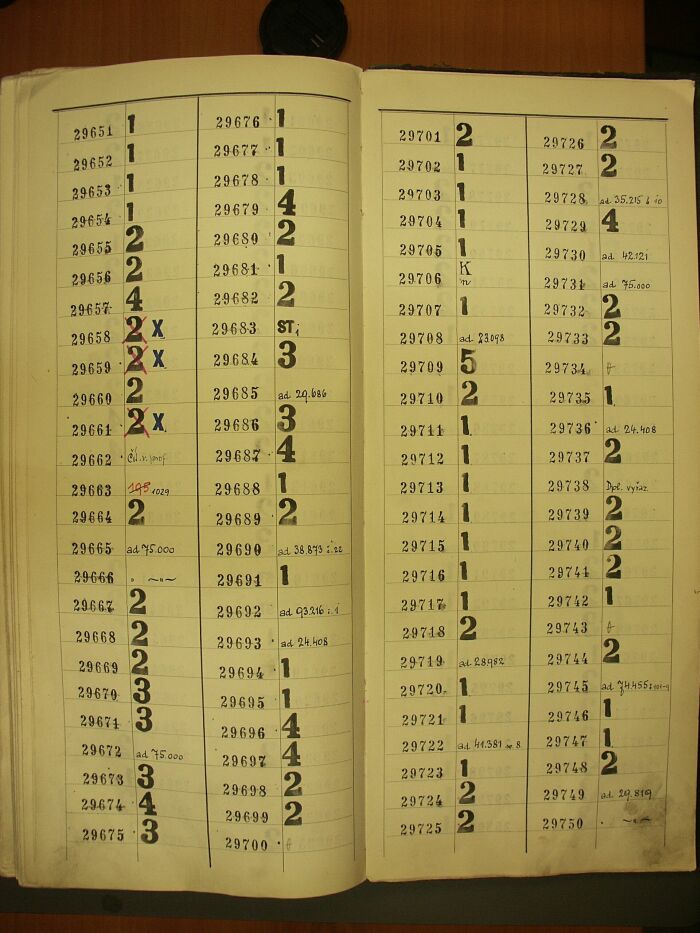 29651 1
29652 1
29653 1
29654 1
29655 2
29656 2
29657 4
29658 2 X
29659 2 X
29660 2
29661 2 X
29662
29663 195 1029
29664 2
29665 ad 75.000
29666 " —"—
29667 2
29668 2
29669 2
29670 3
29671 3
29672 ad 75.000
29673 3
29674 4
29675 3
29676 1
29677 1
29678 1
29679 4
29680 2
29681 1
29682 2
29683 ST;
29684 3
29685 ad 29.686
29686 3
29687 4
29688 1
29689 2
29690 ad 38.873 i. 22
29691 1
29692 ad 93.216 i. 1
29693 ad 24.408
29694 1
29695 1
29696 4
29697 4
29698 2
29699 2
29700
29701 2
29702 1
29703 1
29704 1
29705 1
29706 K
29707 1
29708 ad 23.098
29709 5
29710 2
29711 1
29712 1
29713 1
29714 1
29715 1
29716 1
29717 1
29718 2
29719 ad 28982
29720 1
29721 1
29722 ad 41.381 8
29723 1
29724 2
29725 2
29726 2
29727 2
29728 ad 35.215 10
29729 4
29730 ad 42.121
29731 ad 75.000
29732 2
29733 2
29734
29735 1
29736 ad 24.408
29737 2
29738 Dpl. vyřaz.
29739 2
29740 2
29741 2
29742 1
29743
29744 2
29745 ad 74.455
29746 1
29747 1
29748 2
29749 ad 29.819
29750 " —"—